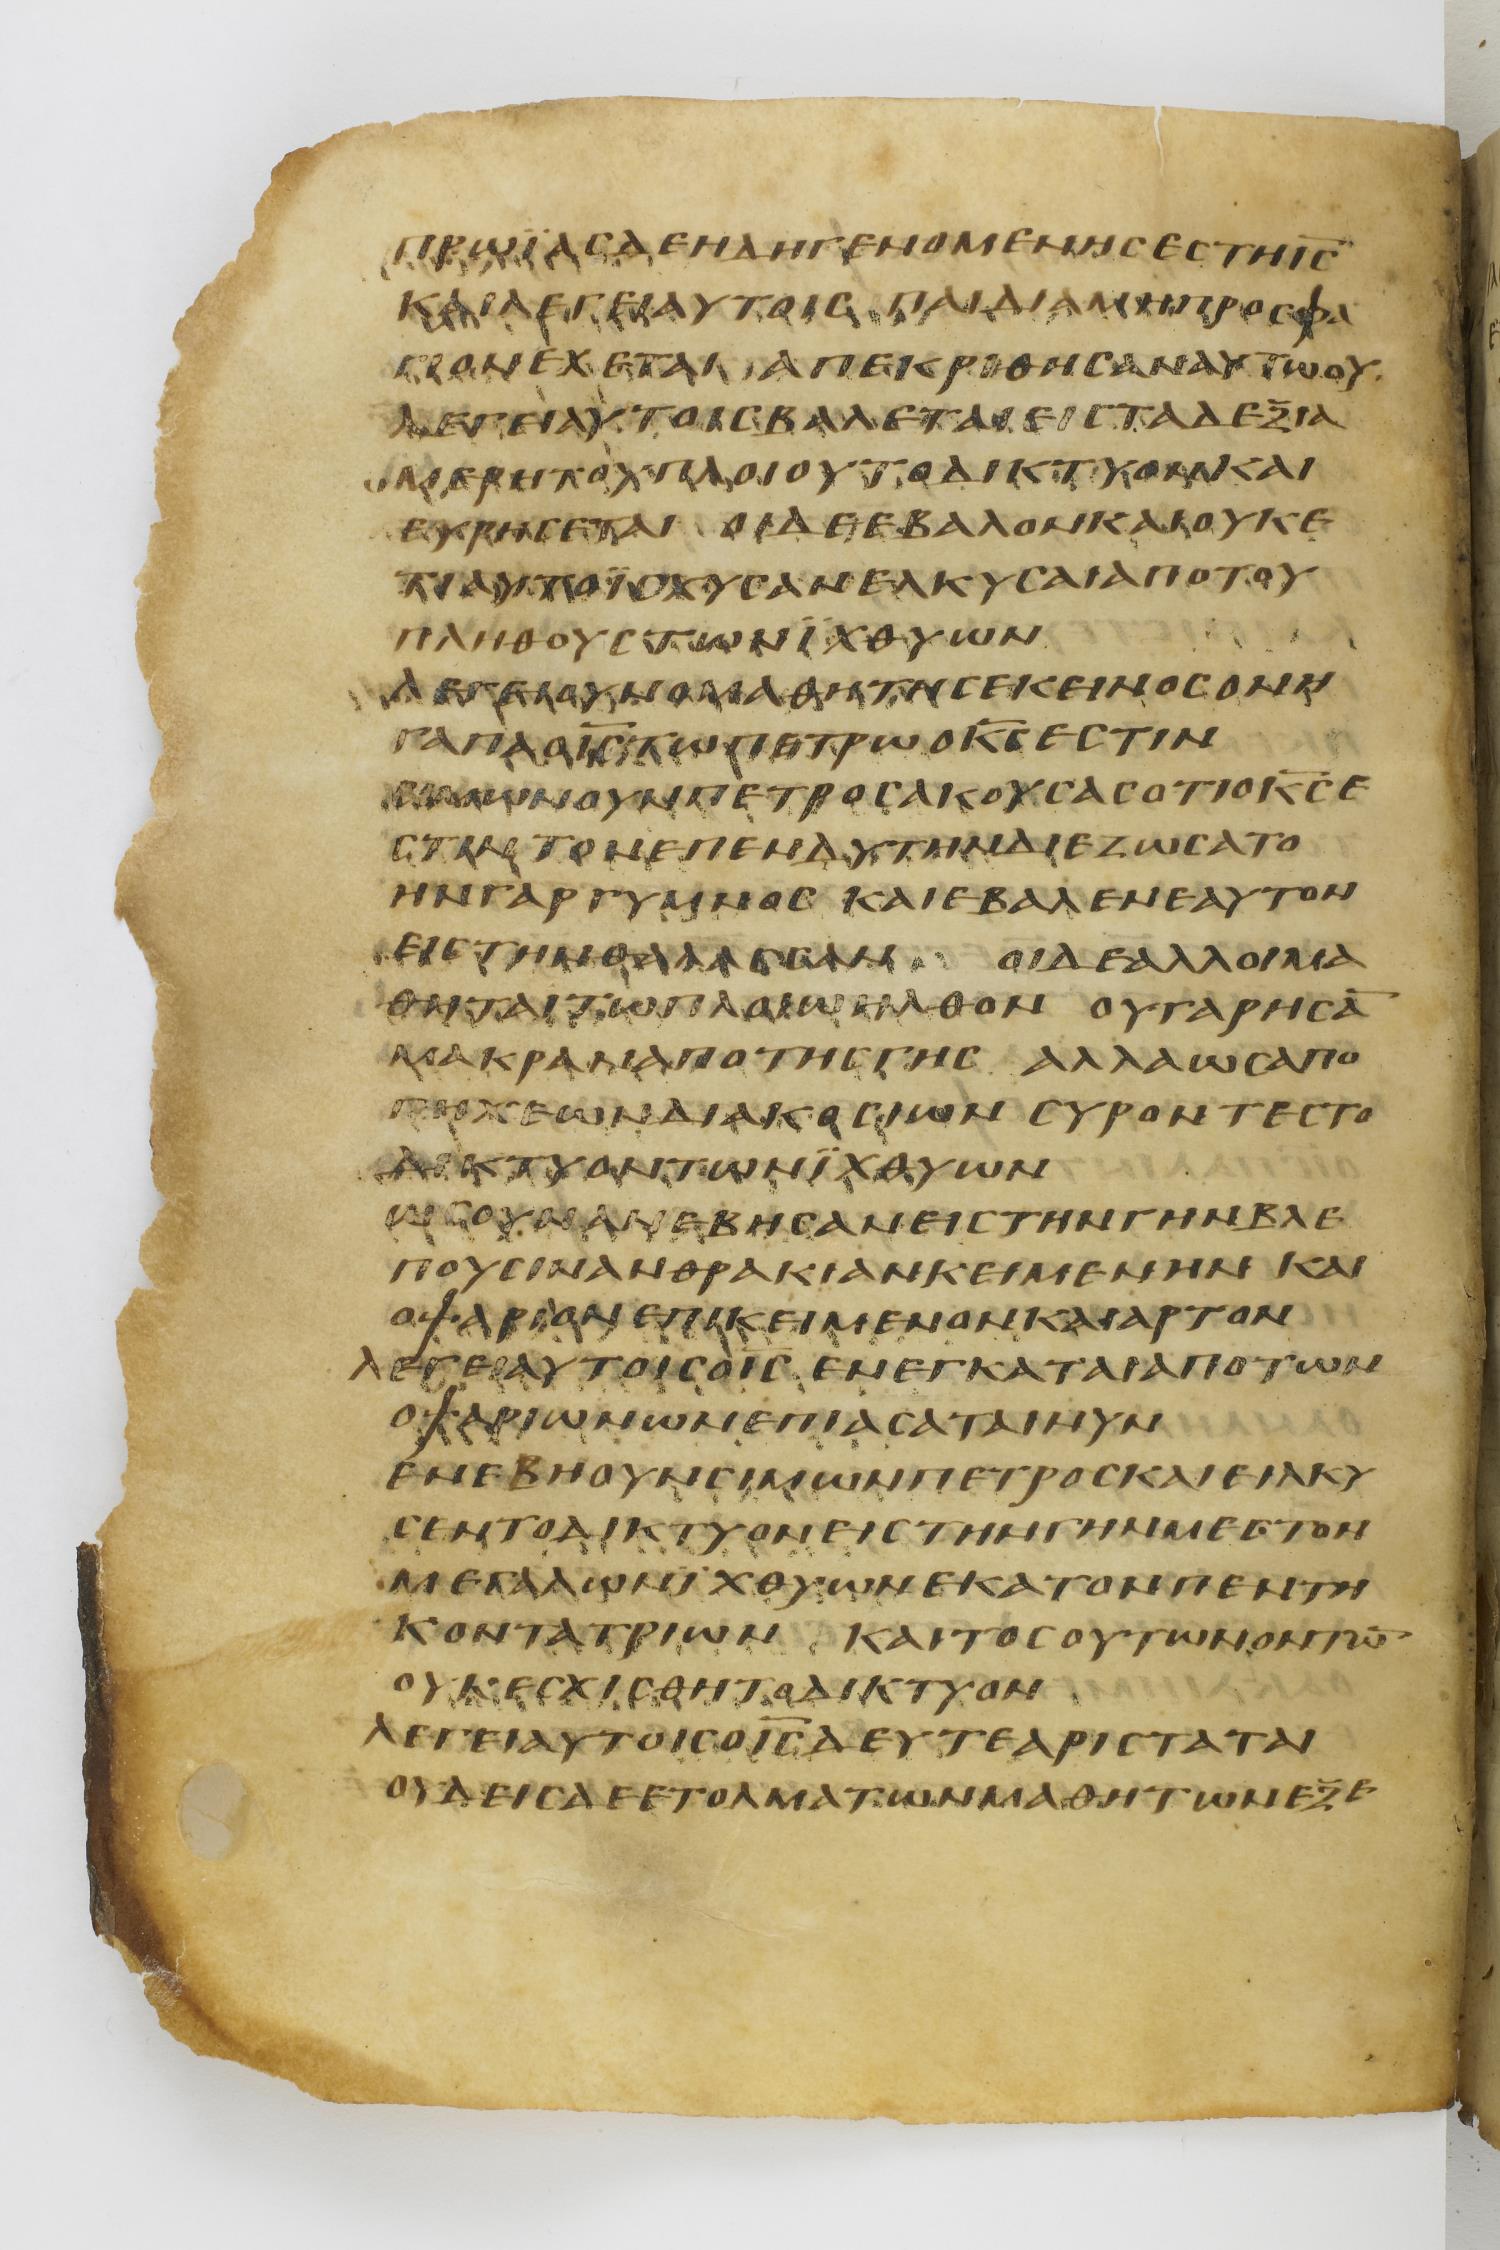 πρωϊασδεηδηγενομενηςεςτηι̅ς̅
καιλεγειαυτοις παιδιαμηπροςφα
γιονεχεται απεκριθηςαναυτωου
λεγειαυτοιςβαλεταιειςταδεξια
μερητουπλοιουτοδικτυονκαι
ευρηςεται οιδεεβαλονκαιουκε
τιαυτοϊςχυςανελκυςαιαποτου
πληθουςτωνϊχθυων
λεγειουνομαθητηςεκεινοςονη
γαπαοι̅ς̅τωπετρωοκ̅ς̅εςτιν
ςιμωνουνπετροςακουςαςοτιοκ̅ς̅ε
ςτιν τονεπενδυτηνδιεζωςατο
ηνγαργυμνος καιεβαλενεαυτον
ειςτηνθαλαςςαν οιδεαλλοιμα
θηταιτωπλοιωηλθον ουγαρηςα̅
μακραναποτηςγης αλλαωςαπο
πηχεωνδιακοςιων ςυροντεςτο
δικτυοντωνϊχθυων
ωςουνανεβηςανειςτηνγηνβλε
πουςινανθρακιανκειμενην και
οψαριονεπικειμενονκαιαρτον
λεγειαυτοιςοι̅ς̅ ενεγκαταιαποτων
οψαριωνωνεπιαςαταινυν
ενεβηουνςιμωνπετροςκαιειλκυ
ςεντοδικτυονειςτηνγηνμεςτον
μεγαλωνϊχθυωνεκατονπεντη
κοντατριων καιτοςουτωνοντω̅
ουκεςχιςθητοδικτυον
λεγειαυτοιςοι̅ς̅δευτεαριςταται
ουδειςδεετολματωνμαθητωνεξε